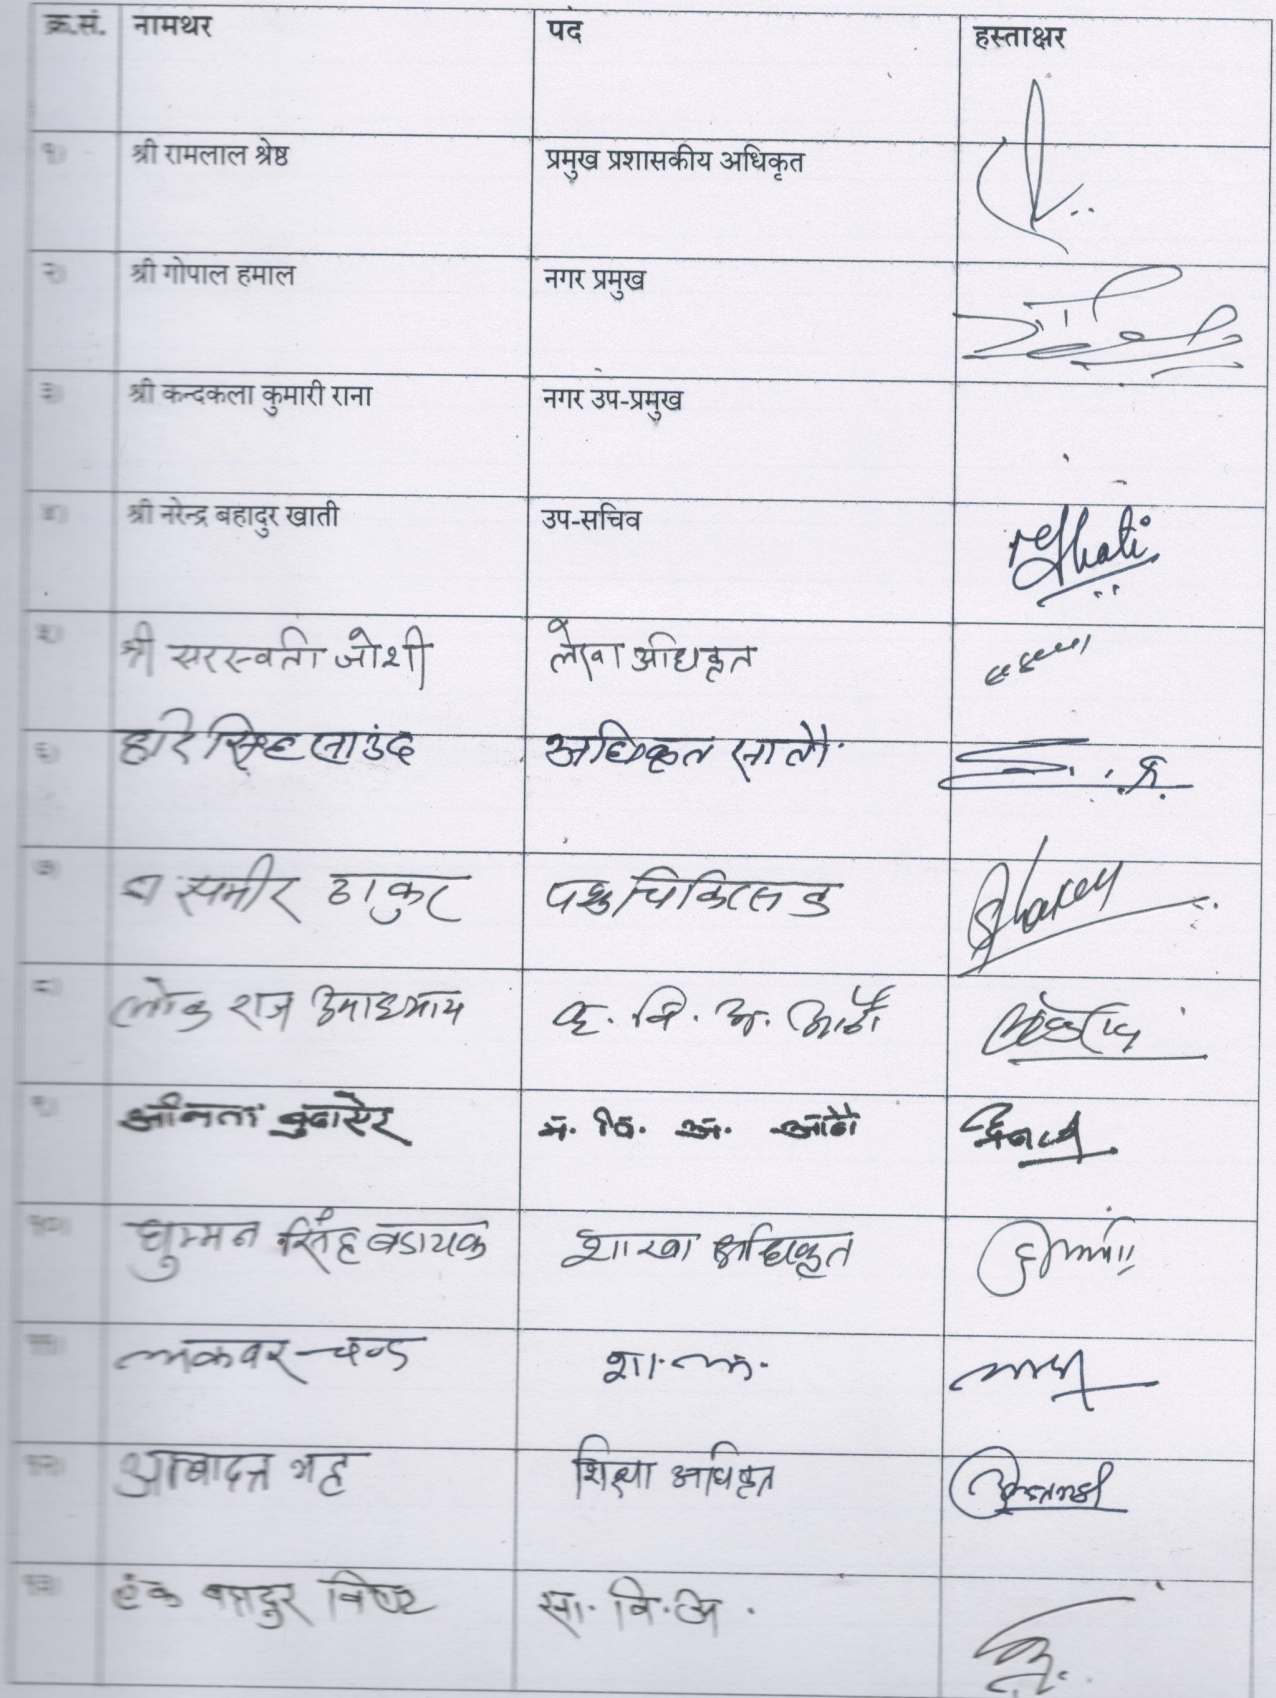 क्र.सं. नामथर पद हस्ताक्षर
१) श्री रामलाल श्रेष्ठ प्रमुख प्रशासकीय अधिकृत
२) श्री गोपाल हमाल नगर प्रमुख
३) श्री कन्दकला कुमारी राना नगर उप-प्रमुख
४) श्री नरेन्द्र बहादुर खाती उप-सचिव
५) श्री सरस्वती जोशी लेखा अधिकृत
६) हरि सिंह साउंद अधिकृत सातौ
७) समीर ठाकुर पशु चिकित्सक
८) लोक राज उपाध्याय कृ. वि. अ. आठौं
९) म. वि. अ. आठौं
१०) घुम्मन सिंह बडायक शाखा अधिकृत
११) चन्द शा.अ.
१२) भट्ट शिक्षा अधिकृत
१३) टेक बहादुर विष्ट सा. वि. अ.